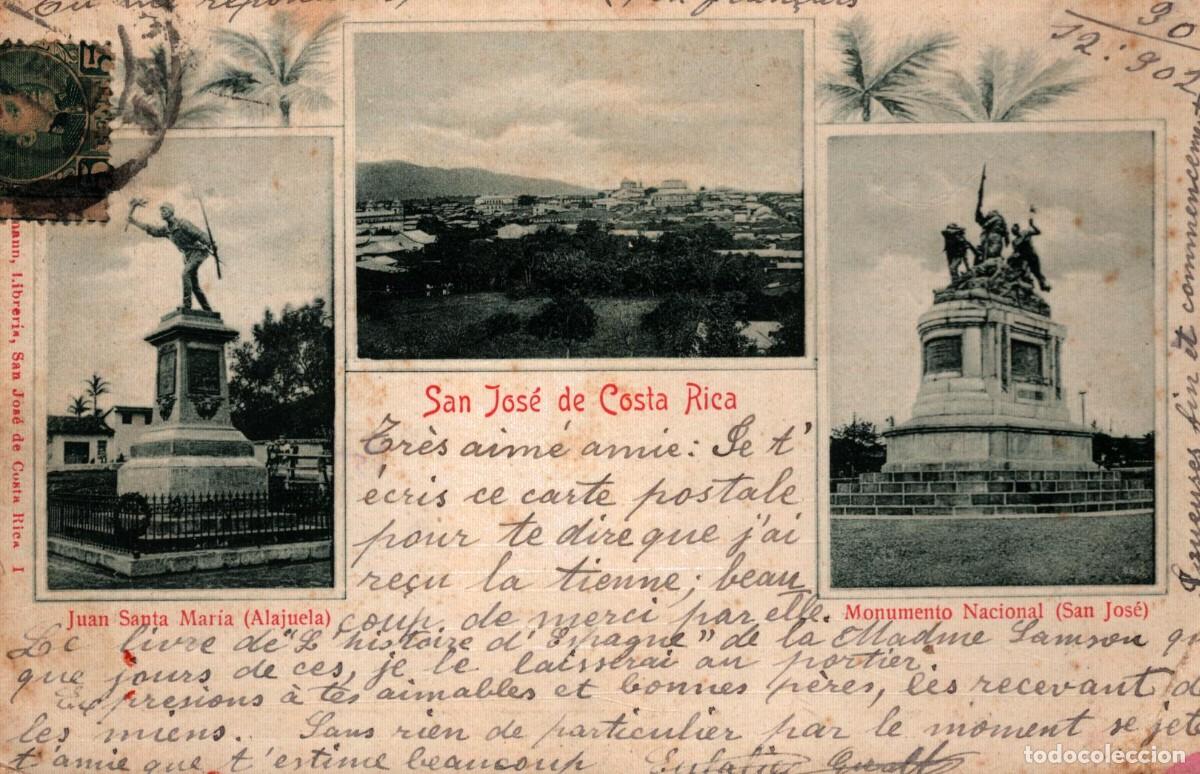 30
12. 902
5
San José de Costa Rica
Très aimé amie: Je t'
écris ce carte postale
pour te dire que j'ai
reçu la tienne; beau
coup de merci par elle.
Juan Santa María (Alajuela)
Monumento Nacional (San José)
Le livre de "L'histoire d'Espagne" de la Madme Samson
que jours de ces, je le laisserai au portier.
Expresions à tes aimables et bonnes pères, les recevant
les miens. Sans rien de particulier par le moment se
t'amie que t'estime beaucoup
mann, Librería, San José de Costa Rica I
fin et commencement
todocoleccion